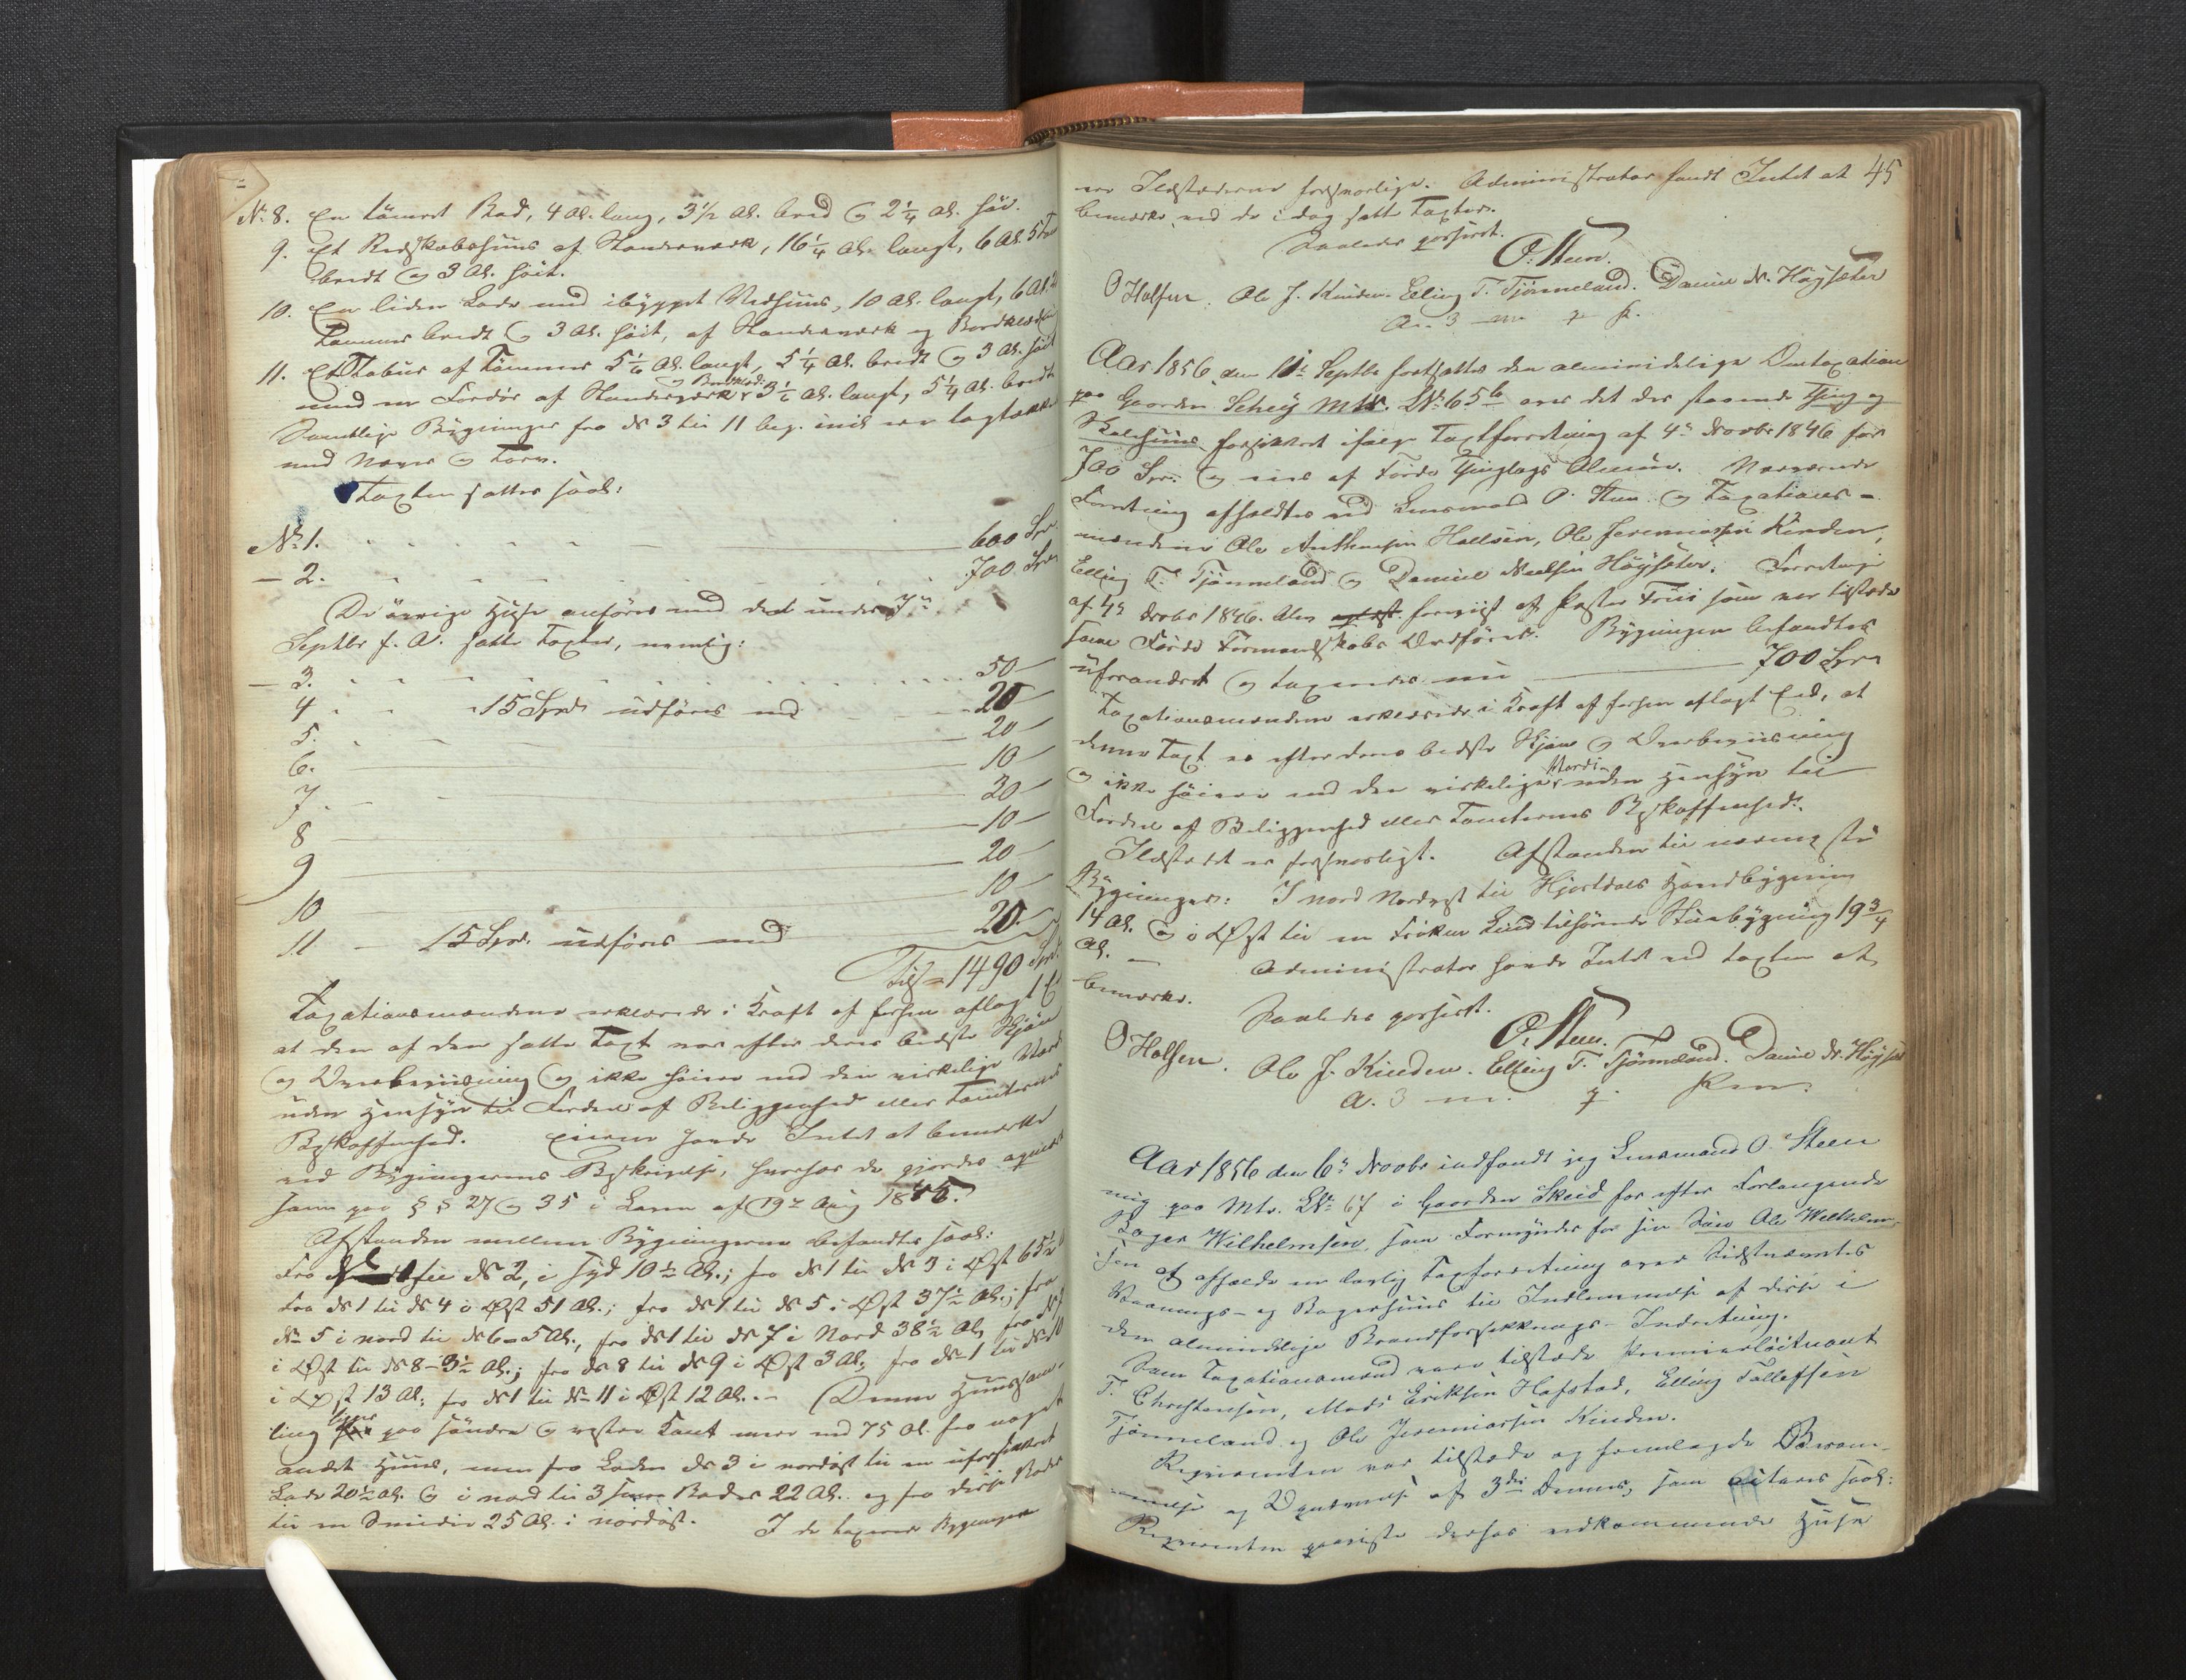 No 8. En tömret Bod, 4 Al. lang, 3 1/2 Al. bred og 2 1/4 Al. höi.
9. Et Redskabshuus af Standerværk, 16 1/4 Al. langt, 6 Al. 5 Tom
bredt og 3 Al. höit.
10. En liden Lade med ibygget Vedhuus, 10 Al. langt, 6 Al.
Tommer bredt og 3 Al. höit, af Standerværk og Bordklædn
11. Et Stabur af Tømmer 5 1/4 Al. langt, 5 1/4 Al. bredt og 3 Al. höit
med en Fordör af Standerværk og Bordklæd: 3 1/2 Al. langt, 5 1/4 Al. bredt
Samtlige Bygninger fra No 3 til 11 beg. incl. ere tagtækked
med Næver og Torv.
Taxten sattes saal:
No 1. 600 Spd
- 2. 700 Spd
De övrige Huse anföres med den under 7de
Septbr f. A. satte Taxter, nemlig:
- 3. 50
4 15 Spd udföres med 20
5. 20
6. 10
7. 20
8 10
9 20
10 10
11 - 15 Spd. udföres med 20
Tils - 1490 Spd.
Taxationsmændene erklærede i Kraft af forhen aflagt Ed
at den af dem satte Taxt var efter deres bedste Skjön
og Overbeviisning og ikke höiere end den virkelige Værd
uden Hensyn til Fordeel af Beliggenhed eller Tomternes
Beskaffenhed. Eieren havde Intet at bemærke
ved Bygningernes Beskrivelse, hvorhos de gjordes opmærk
som paa § § 27 og 35 i Loven af 19de Aug 1845.
Afstanden mellem Bygningerne befandtes saal:
Fra No 1 til No 2, i Syd 10 1/2 Al.; fra No 1 til No 3 i Öst 65 1/2
fra No 1 til No 4 i Öst 51 Al.; fra No 1 til No 5 i Öst 37 1/2 Al.; fra
No 5 i nord til No 6 - 5 Al., fra No 1 til No 7 i Nord 38 1/2 Al, fra No 7
i Öst til No 8 - 3 1/2 Al.; fra No 8 til No 9 i Öst 3 Al; fra No 1 til No 10
i Öst 13 Al; fra No 1 til No 11 i Öst 12 Al. - Denne Huussam-
ling ligger paa söndre og vestre Kant mere end 75 Al. fra noget
andet Huus, men fra Laden No 3 i nordöst til en uforsikkret
Lade 20 1/2 Al. og i nord til 3 Boder 22 Al. og fra disse Boder
til en Smedie 25 Al. i nordöst. I de taxerede Bygninger
45
var Ildstederne forsvarlige. Administrator fandt Intet at
bemærke ved de i dag satte Taxter.
Saaledes passeret.
O. Steen.
O Halsen. Ole J. Kinden. Elling T. Tjönneland. Daniel N. Höysæter
Aar 1856 den 11te Septbr fortsattes den almindelige Omtaxation
paa Gaarden Schey Mtr. LNo 65 b over det der staaende Thing og
Skolehuus forsikkret ifölge Taxtforretning af 4de Novbr 1846 for
700 Spd. og eies af Förde Thinglags Almue. Nærværende
Forretning afholdtes ved Lensmand O. Steen og Taxations-
mændene Ole Anthonsen Hallsen, Ole Jeremiassen Kinden,
Elling T. Tjönneland og Daniel Nielsen Höysæter. Forretninge
af 4de Novbr 1846 blev foreviist af Pastor Friis som var tilstede
som Förde Formandskabs Ordförer. Bygningen befandtes
uforandret og taxeredes nu 700 Spd
Taxationsmændene erklærede i Kraft af forhen aflagt Eed, at
denne Taxt er efter deres bedste Skjön og Overbeviisning
og ikke höiere end den virkelige Værdi uden Hensyn til
Fordeel af Beliggenhed eller Tomternes Beskaffenhed.
Ildstedet er forsvarligt. Afstanden til nærmeste
Bygninger: I nord Nordvest til Hjortdals Handbygning
14 Al. og i Öst til en Fröken Lind tilhörende Stuebygning 19 3/4
Al. - Administrator havde Intet ved taxten at
bemærke.
Saaledes passeret.
O. Steen.
O Halsen. Ole J. Kinden. Elling T. Tjönneland. Daniel N. Höysæt
Aar 1856 den 6te Novbr indfandt jeg Lensmand O. Steen
mig paa Mtr. LNo 67 i Gaarden Skeid for efter Forlangende
Wilhelmsen, som Formynder for sin Sön Ole Wilhelm-
sen at afholde en lovlig Taxforretning over Sidstnævntes
Vaanings- og Bagerhuus til Indlemmelse af disse i
den almindelige Brandforsikkrings-Indretning.
Som Taxationsmænd vare tilstede Premierlöitnant
T. Christensen, Mads Eriksen Hafstad, Elling Tollefsen
Tjönneland og Ole Jeremiassen Kinden.
Reqvirenten var tilstede og fremlagde Beram-
melse og Opnævnelse af 3die Dennes, som citeres saal:
Reqvirenten paaviste derhos vedkommende Huse